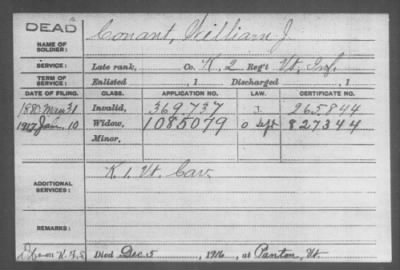 DEAD
NAME OF SOLDIER: Conant, William J.
SERVICE: Late rank, Co. K, 2 Reg't Vt. Inf.
TERM OF SERVICE: Enlisted , 1 Discharged , 1
DATE OF FILING. CLASS. APPLICATION NO. LAW. CERTIFICATE NO.
1880 Mar 31 Invalid, 369.737 265.844
1917 Jan. 10 Widow, 1085079 O Sept 827344
Minor,
ADDITIONAL SERVICES: K. 1. Vt. Cav.
REMARKS:
Died Dec. 5 , 1916, at Panton, Vt.